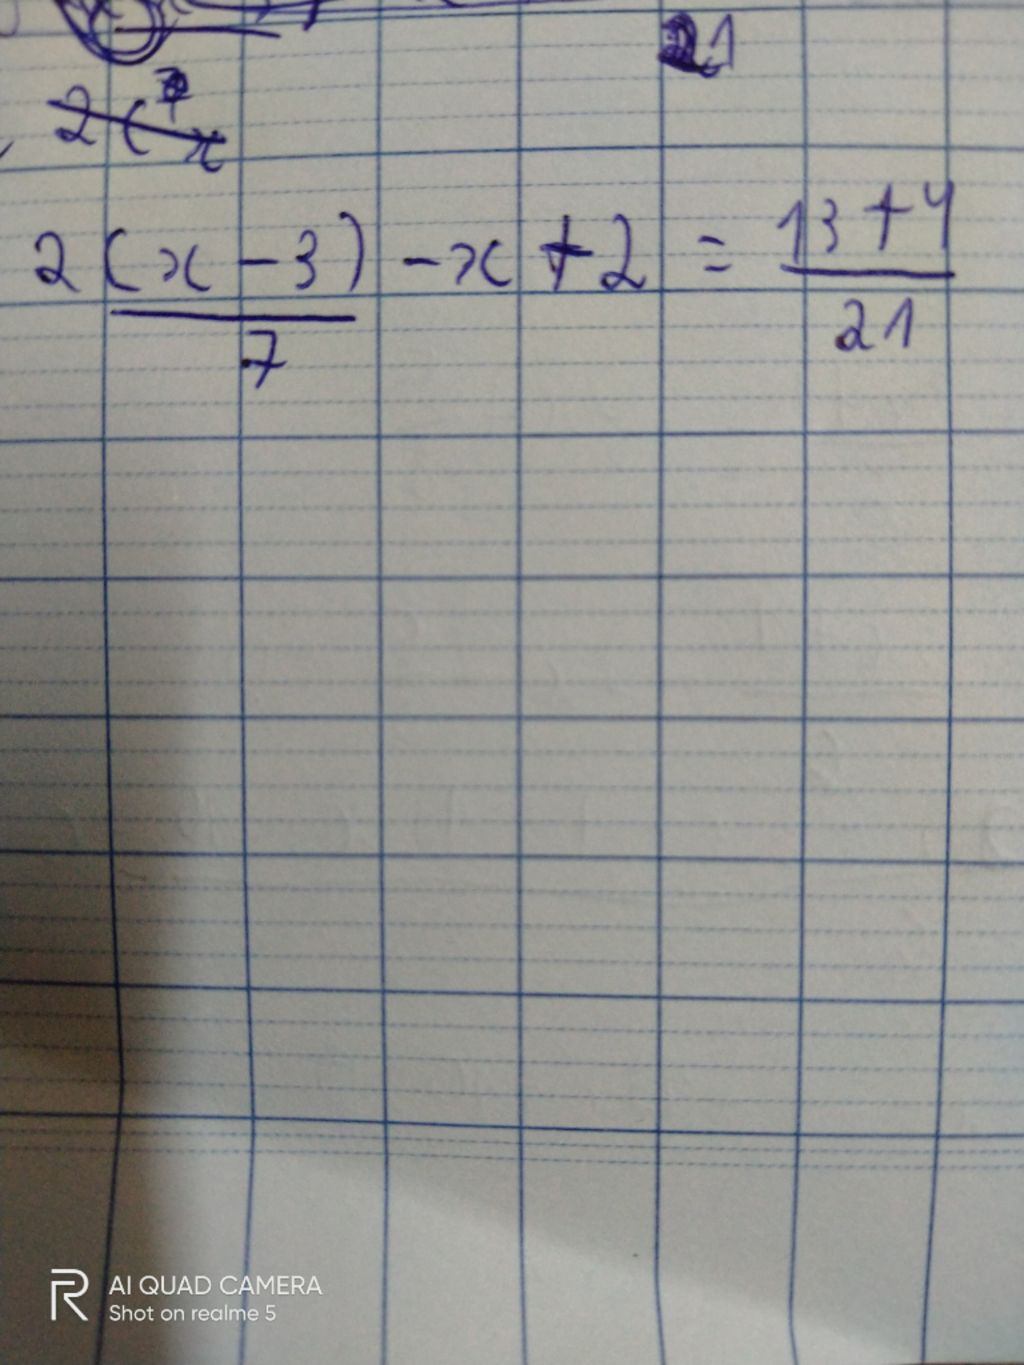 21
2(x
2(x-3)/7 -x+2 = 13+4/21
AI QUAD CAMERA
Shot on realme 5